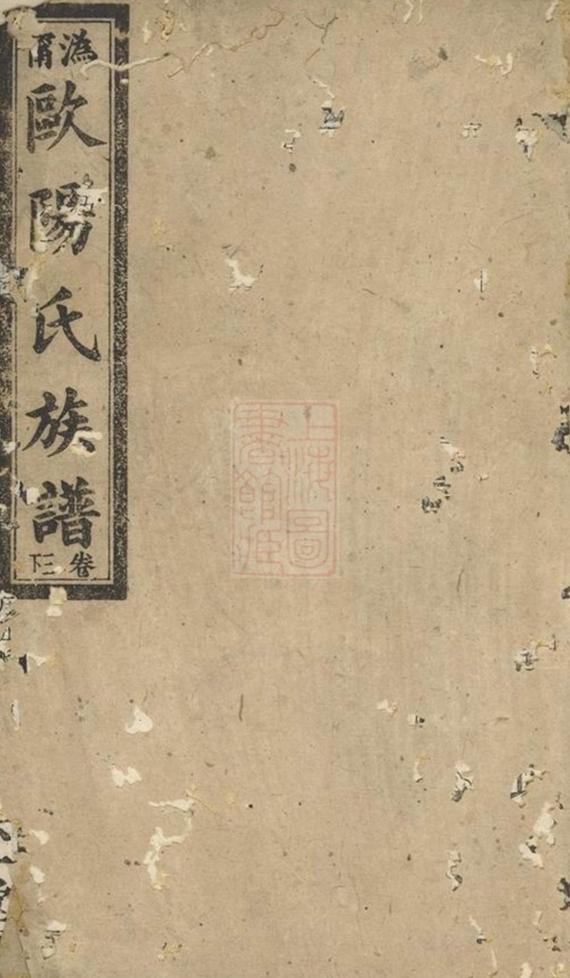 溈甯
歐陽氏族譜
卷三下
上海圖書館藏